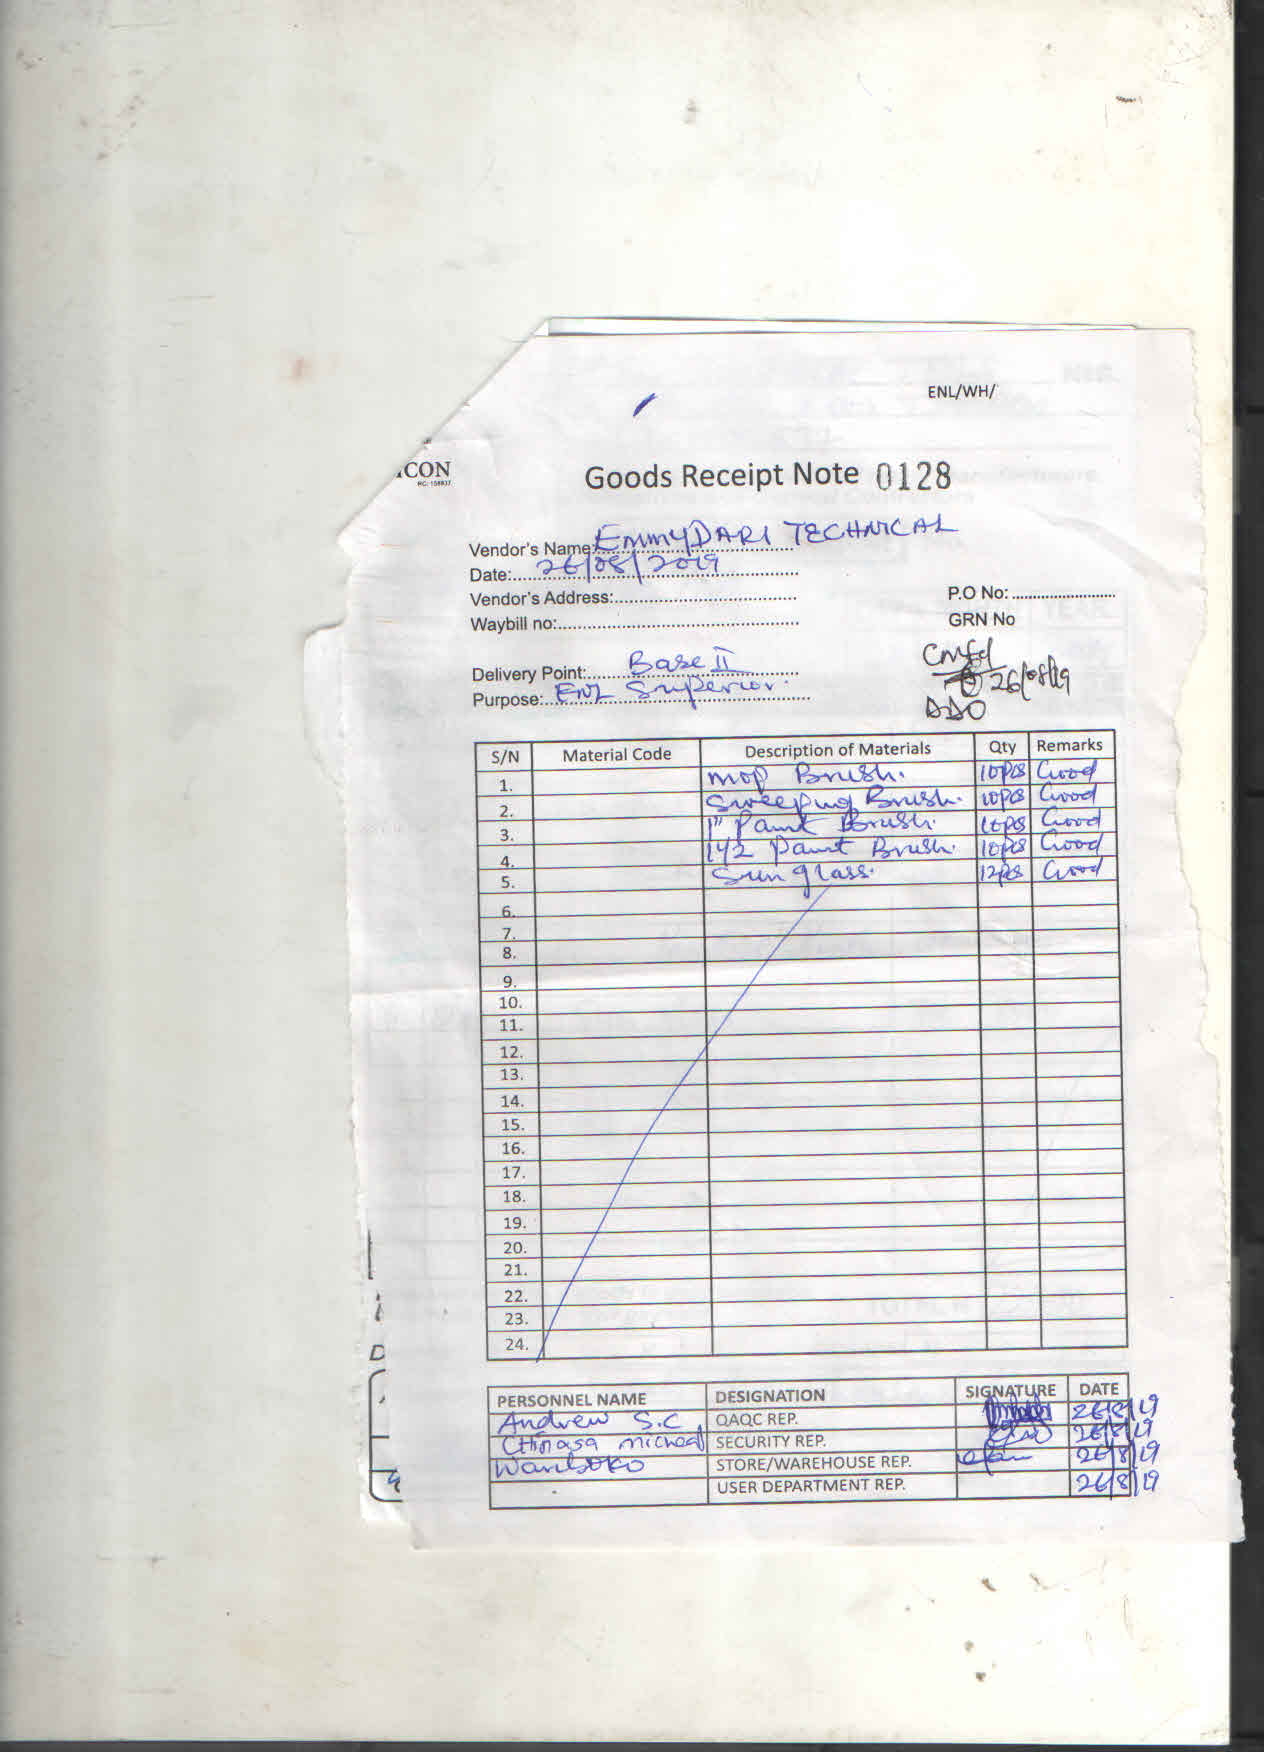 ENL/WH/
CON
RC: 158837
Goods Receipt Note 0128
Vendor's Name: EmmyDARI TECHNICAL
Date: 26/08/2019
Vendor's Address:
P.O No:
Waybill no:
GRN No
Delivery Point: Base II
Purpose: ENL Superior.
26/08/19
S/N Material Code Description of Materials Qty Remarks
1. mop Brush. 10pcs Good
2. Sweeping Brush. 10pcs Good
3. 1" Paint Brush. 10pcs Good
4. 1 1/2 Paint Brush. 10pcs Good
5. Sun glass. 12pcs Good
6.
7.
8.
9.
10.
11.
12.
13.
14.
15.
16.
17.
18.
19.
20.
21.
22.
23.
24.
PERSONNEL NAME DESIGNATION SIGNATURE DATE
Andrew S.C QAQC REP. 26/8/19
Chinasa Micheal SECURITY REP. 26/8/19
Wariboko STORE/WAREHOUSE REP. 26/8/19
USER DEPARTMENT REP. 26/8/19